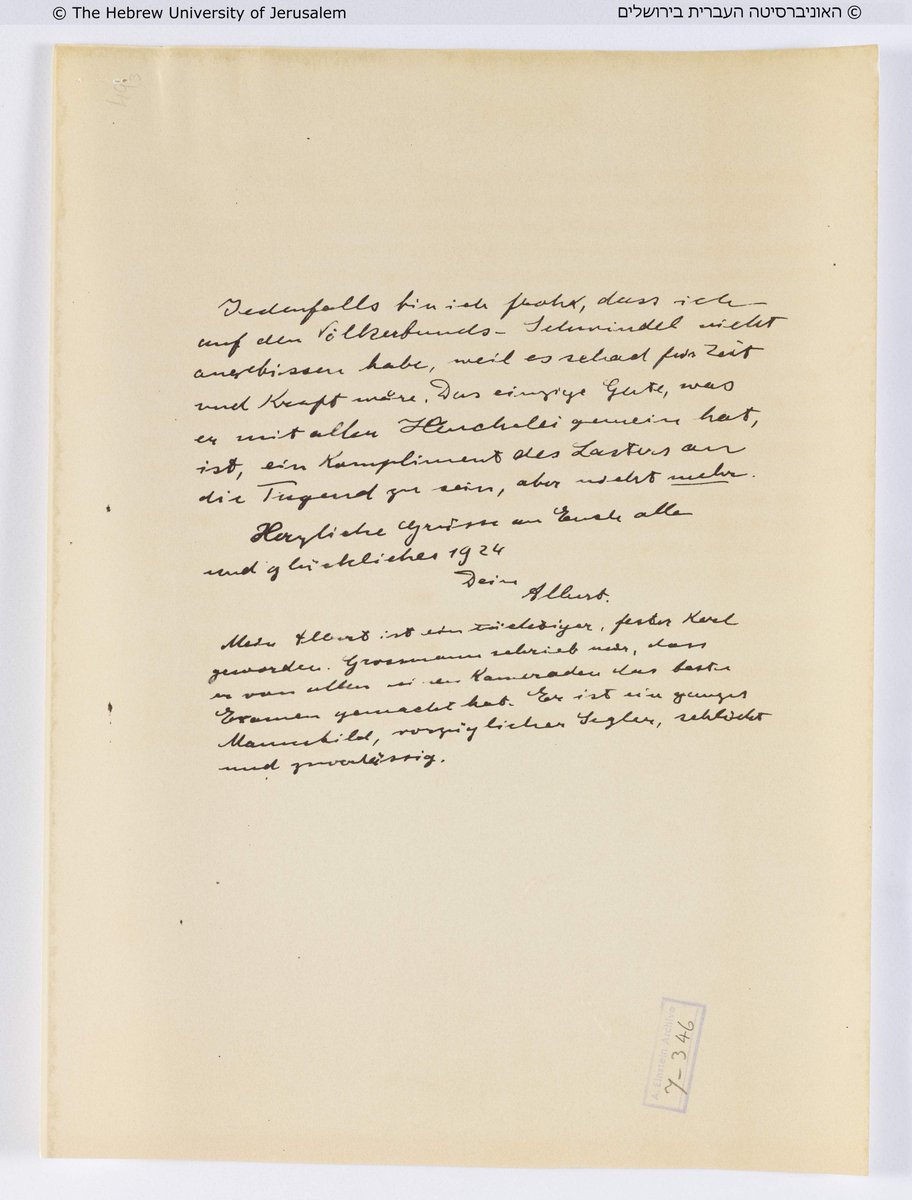 © The Hebrew University of Jerusalem
© האוניברסיטה העברית בירושלים
Jedenfalls bin ich froh, dass ich
auf den Völkerbunds-Schwindel nicht
angebissen habe, weil es schad für Zeit
und Kraft wäre. Das einzige Gute, was
er mit aller Heuchelei gemein hat,
ist, ein Kompliment des Lasters an
die Tugend zu sein, aber nicht mehr.
Herzliche Grüsse an Euch alle
und glückliches 1924
Dein
Albert.
Mein Albert ist ein tüchtiger, fester Kerl
geworden. Grossmann schrieb mir, dass
er von allen Kameraden das beste
Examen gemacht hat. Er ist ein ganzes
Mannsbild, vorzüglicher Segler, schlicht
und zuverlässig.
A. Einstein Archive
7-346